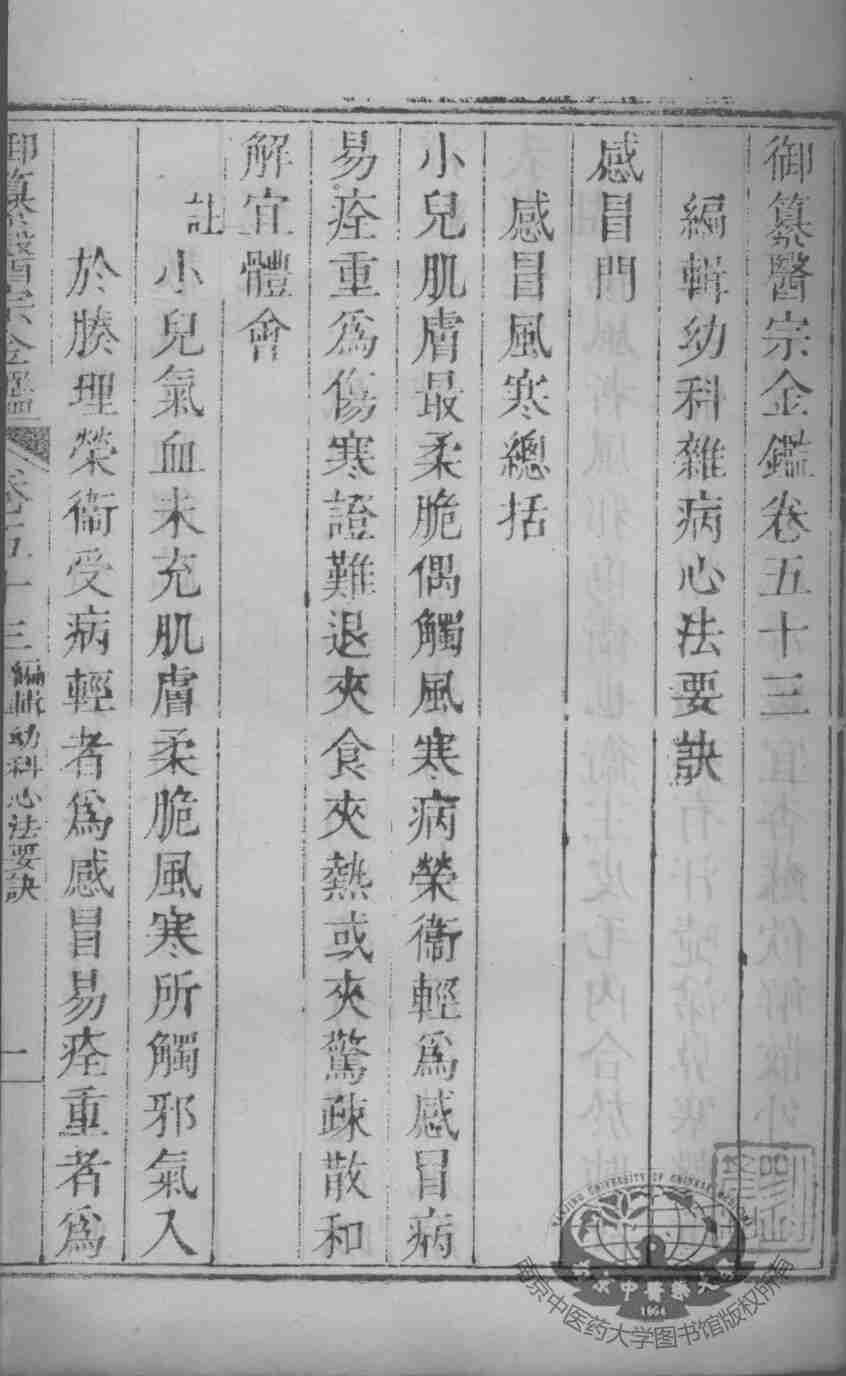 御纂醫宗金鑑卷五十三
編輯幼科雜病心法要訣
感冒門
感冒風寒總括
小兒肌膚最柔脆偶觸風寒病榮衞輕爲感冒病
易痊重爲傷寒證難退夾食夾熱或夾驚疎散和
解宜體會
註小兒氣血未充肌膚柔脆風寒所觸邪氣入
於腠理榮衞受病輕者爲感冒易痊重者爲
御纂醫宗金鑑 卷五十三 編輯幼科心法要訣 一
NANJING UNIVERSITY OF CHINESE MEDICINE
南京中醫藥大學
1954
南京中医药大学图书馆版权所有